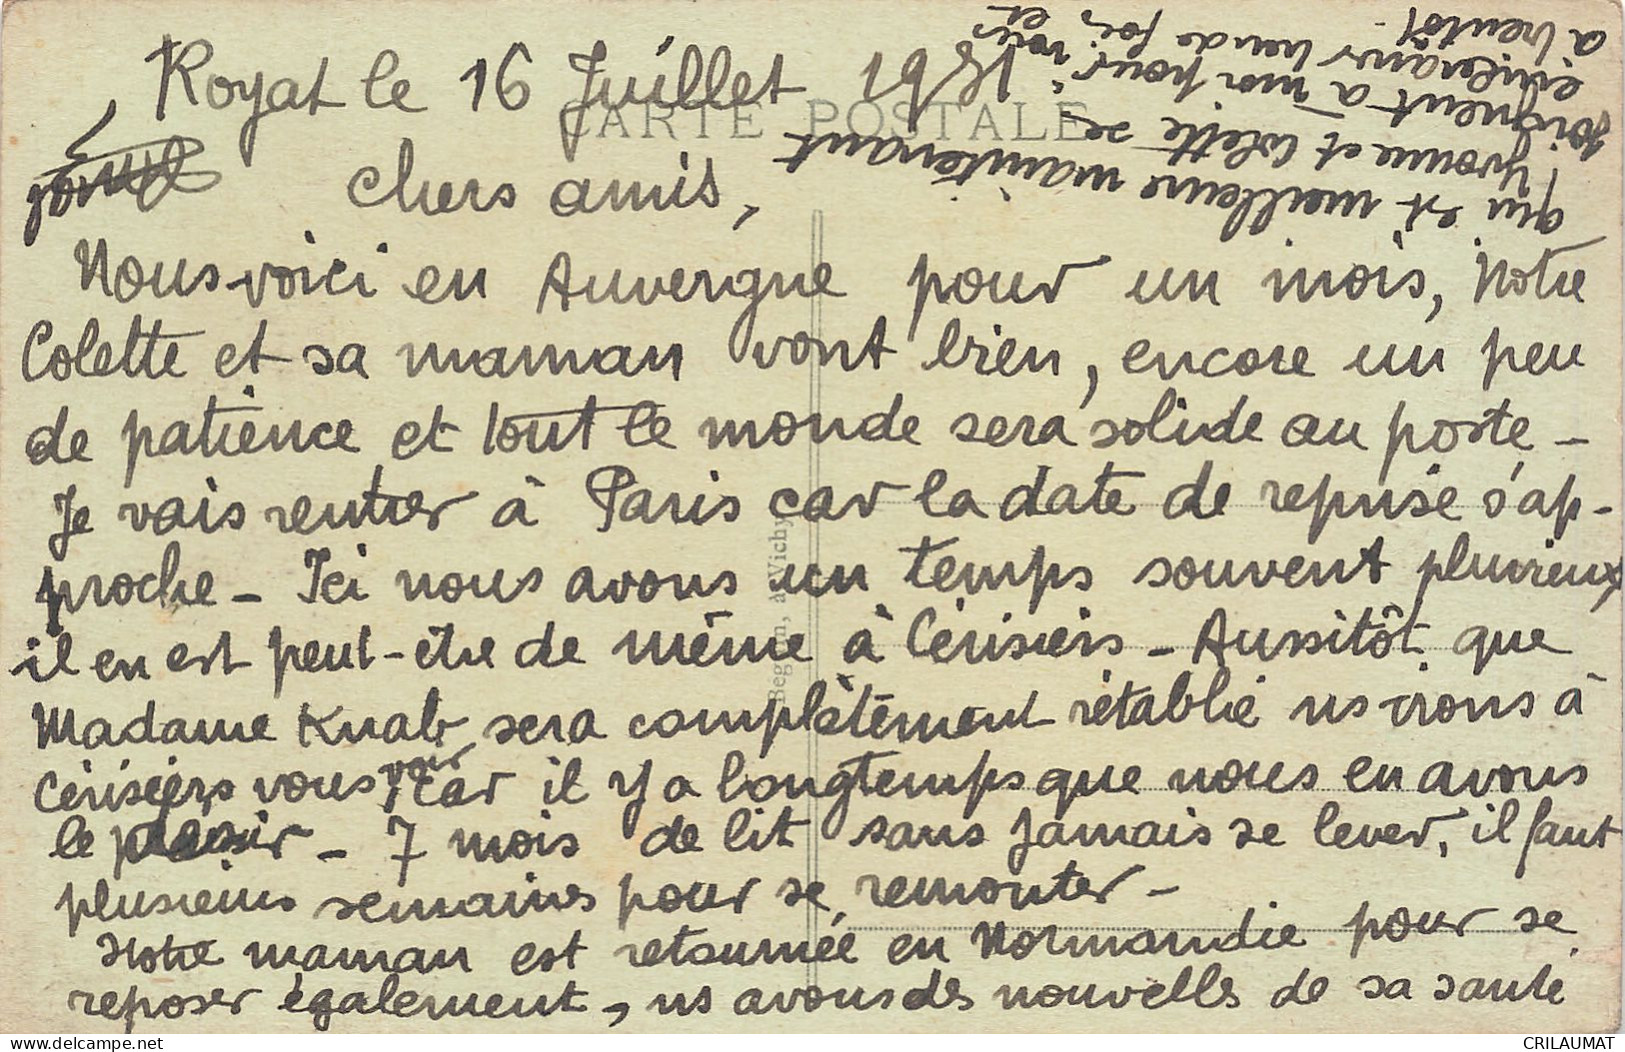 Royat le 16 Juillet 19
CARTE POSTALE
chers amis,
Nous voici en Auvergne pour un mois, Notre
Colette et sa maman vont bien, encore un peu
de patience et tout le monde sera solide au poste –
Je vais rentrer à Paris car la date de reprise s'ap-
proche – Ici nous avons un temps souvent pluvieux
il en est peut-être de même à Cérisiers – Aussitôt que
Madame Knab sera complètement rétablie ns irons à
Cérisiers vous voir car il y a longtemps que nous en avons
le plaisir – 7 mois de lit sans jamais se lever, il faut
plusieurs semaines pour se remonter –
Notre maman est retournée en Normandie pour se
reposer également, ns avons des nouvelles de sa santé
qui est meilleure maintenant
Yvonne et Colette se
joignent à moi pour vous
et
à bientôt –
Beguin, à Vichy
delcampe.net
CRILAUMAT